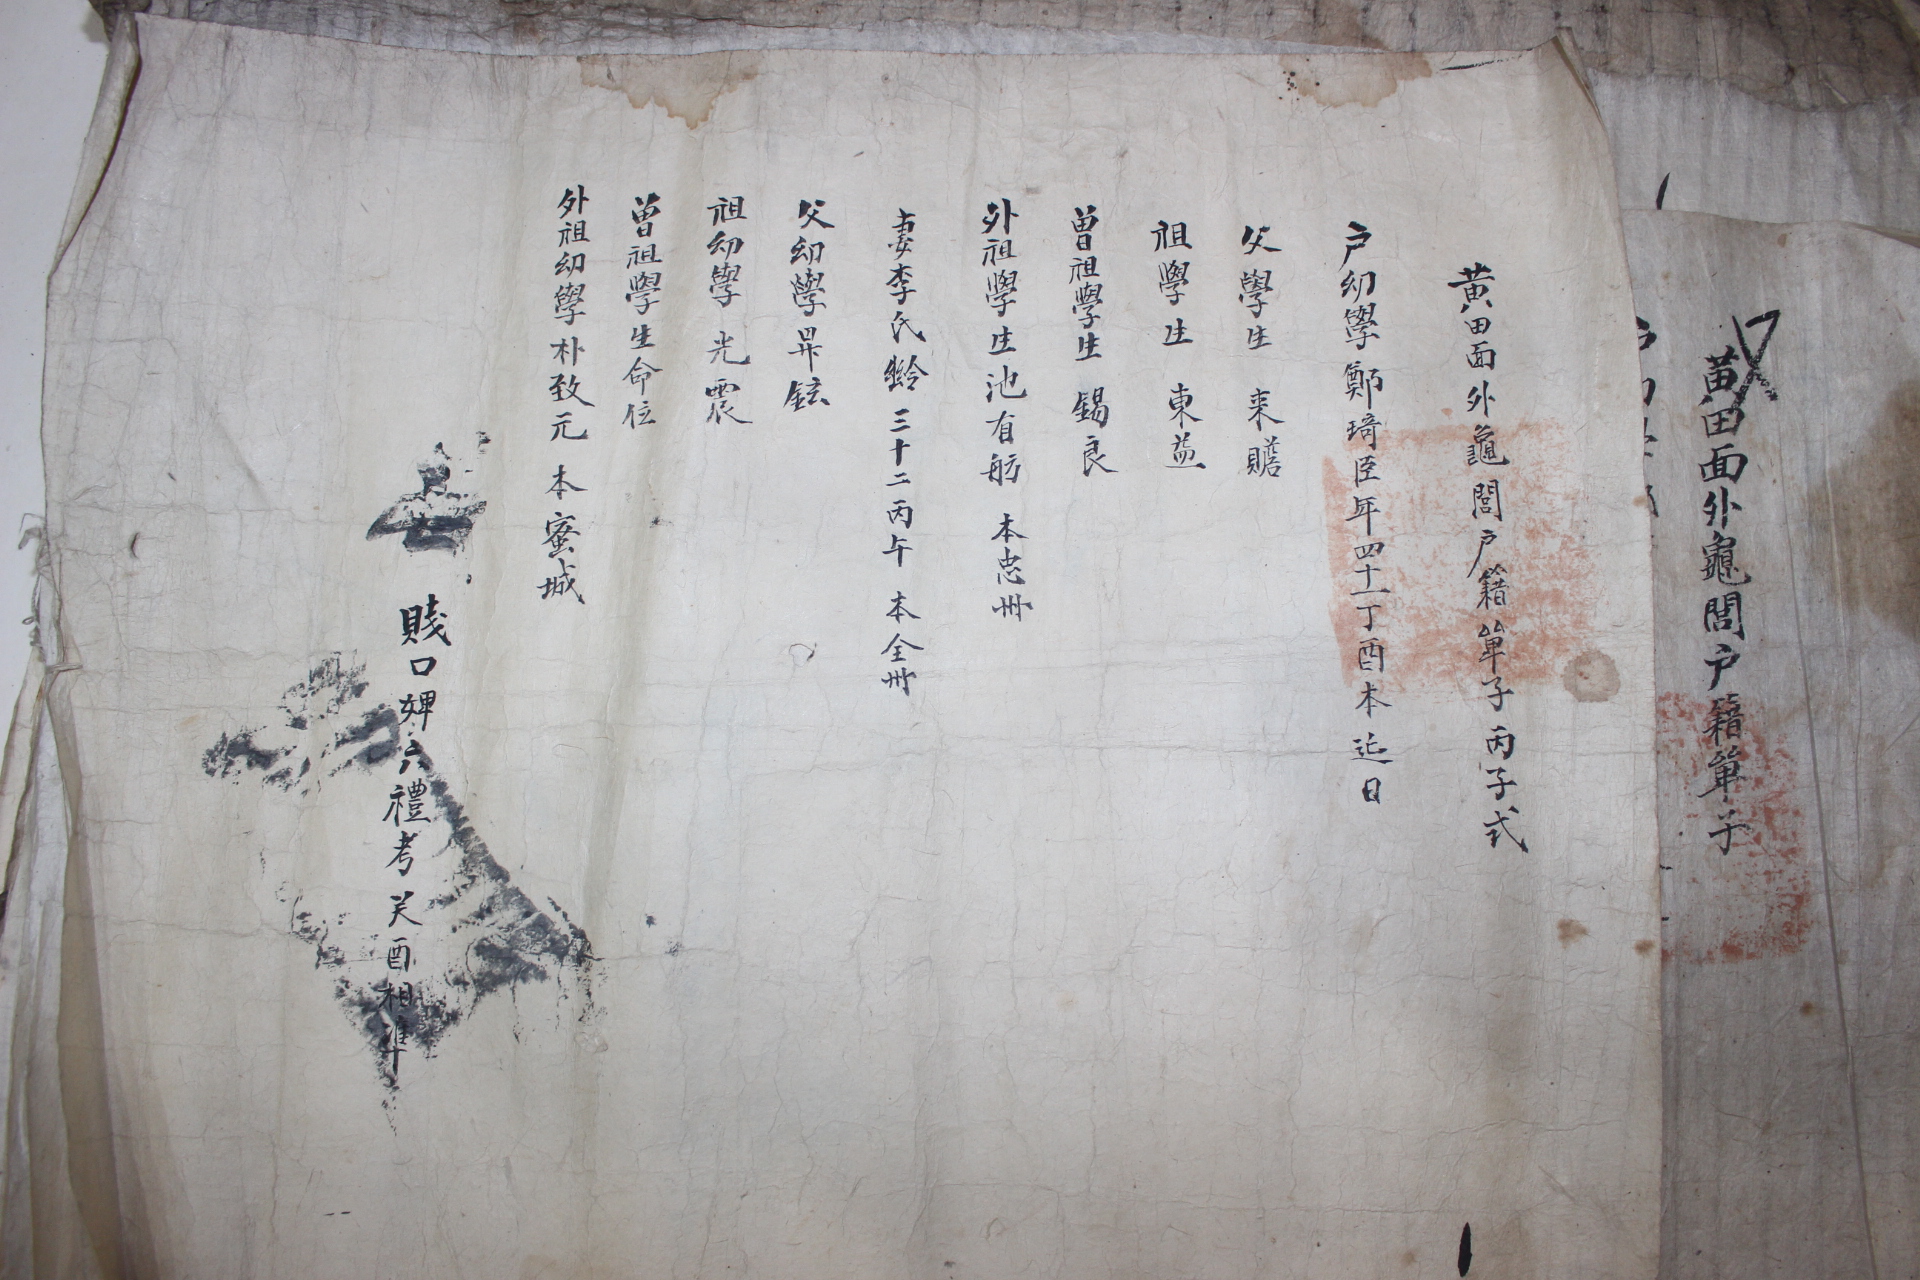 黃田面外龜閭戶籍單子
黃田面外龜閭戶籍單子丙子式
戶幼學鄭琦臣年四十一丁酉本延日
父學生 來贍
祖學生 東益
曾祖學生 錫良
外祖學生池有舫 本忠州
妻李氏齡三十二丙午 本全州
父幼學昇鉉
祖幼學 光震
曾祖學生命位
外祖幼學朴致元 本蜜城
賤口婢六禮考癸酉相準